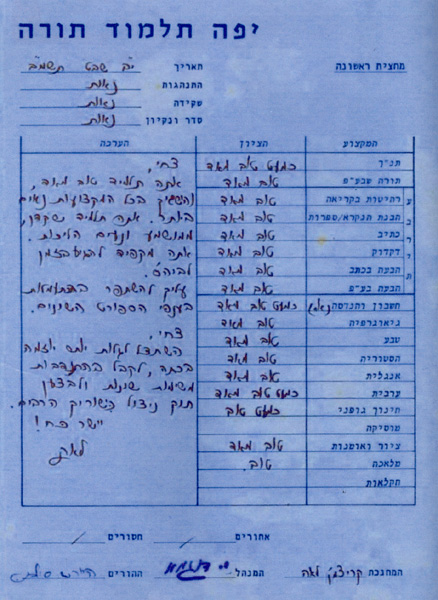 יפה תלמוד תורה
מחצית ראשונה
תאריך י"ח שבט תשמ"ב
התנהגות נאות
שקידה נאות
סדר ונקיון נאות
המקצוע הציון הערכה
תנ"ך כמעט טוב מאד
תורה שבע"פ טוב מאד
רהיטות בקריאה טוב מאד
הבנת הנקרא/ספרות טוב מאד
כתיב טוב מאד
דקדוק טוב מאד
הבעה בכתב טוב מאד
הבעה בע"פ טוב מאד
עברית
חשבון והנדסה כמעט טוב מאד
גיאוגרפיה טוב מאד
טבע טוב מאד
הסטוריה טוב מאד
אנגלית טוב מאד
ערבית כמעט טוב מאד
חינוך גופני כמעט טוב
מוסיקה
ציור ואומנות טוב מאד
מלאכה טוב
חקלאות
צחי,
אתה תלמיד טוב מאד,
והישגיך בכל המקצועות נאים
ביותר. אתה תלמיד שקדן,
ממושמע ונעים הליכות.
אתה מקפיד להגיע בזמן
לביה"ס.
עליך להשתפר בהתעמלות
בענפי הספורט השונים.
צחי,
השתדל לגלות יתר יוזמה
בכתה, לקבל בהתנדבות
משימות שונות ולבצען
תוך ניצול כישוריך הרבים.
יישר כח!
לאה
אחורים / חסורים /
המחנכת קריצמן לאה המנהל ההורים